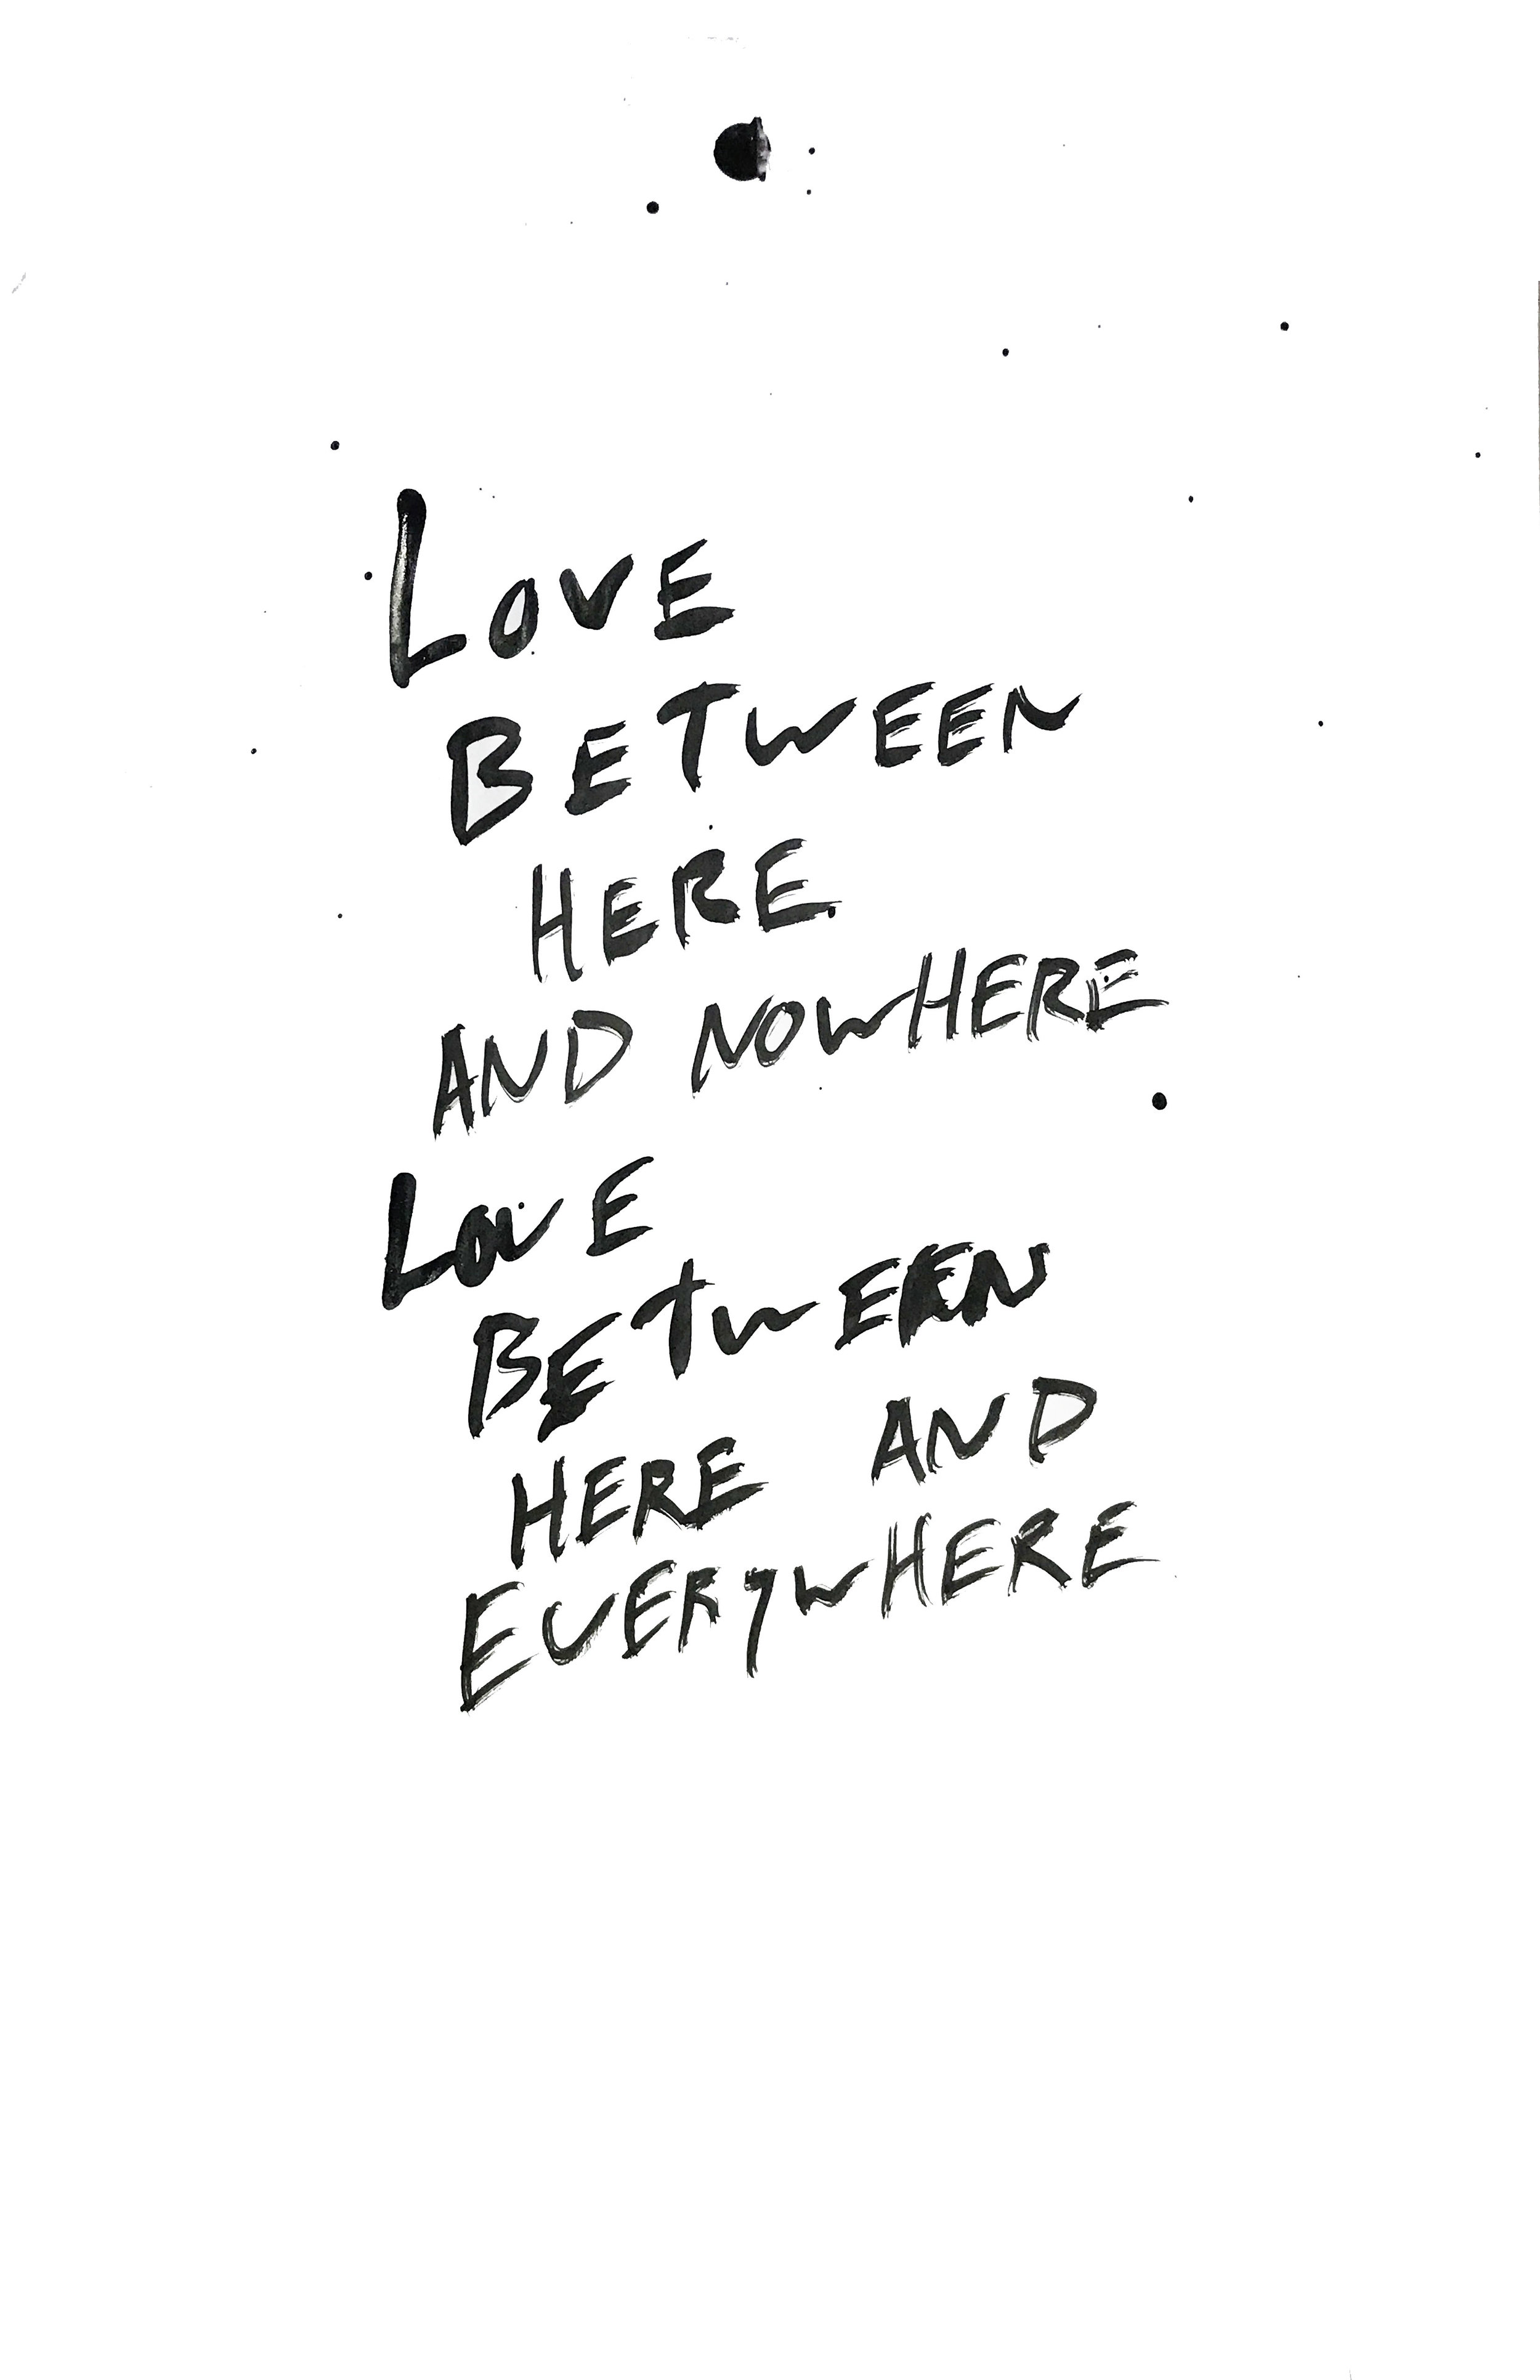 LOVE
BETWEEN
HERE
AND NOWHERE
LOVE
BETWEEN
HERE AND
EVERYWHERE